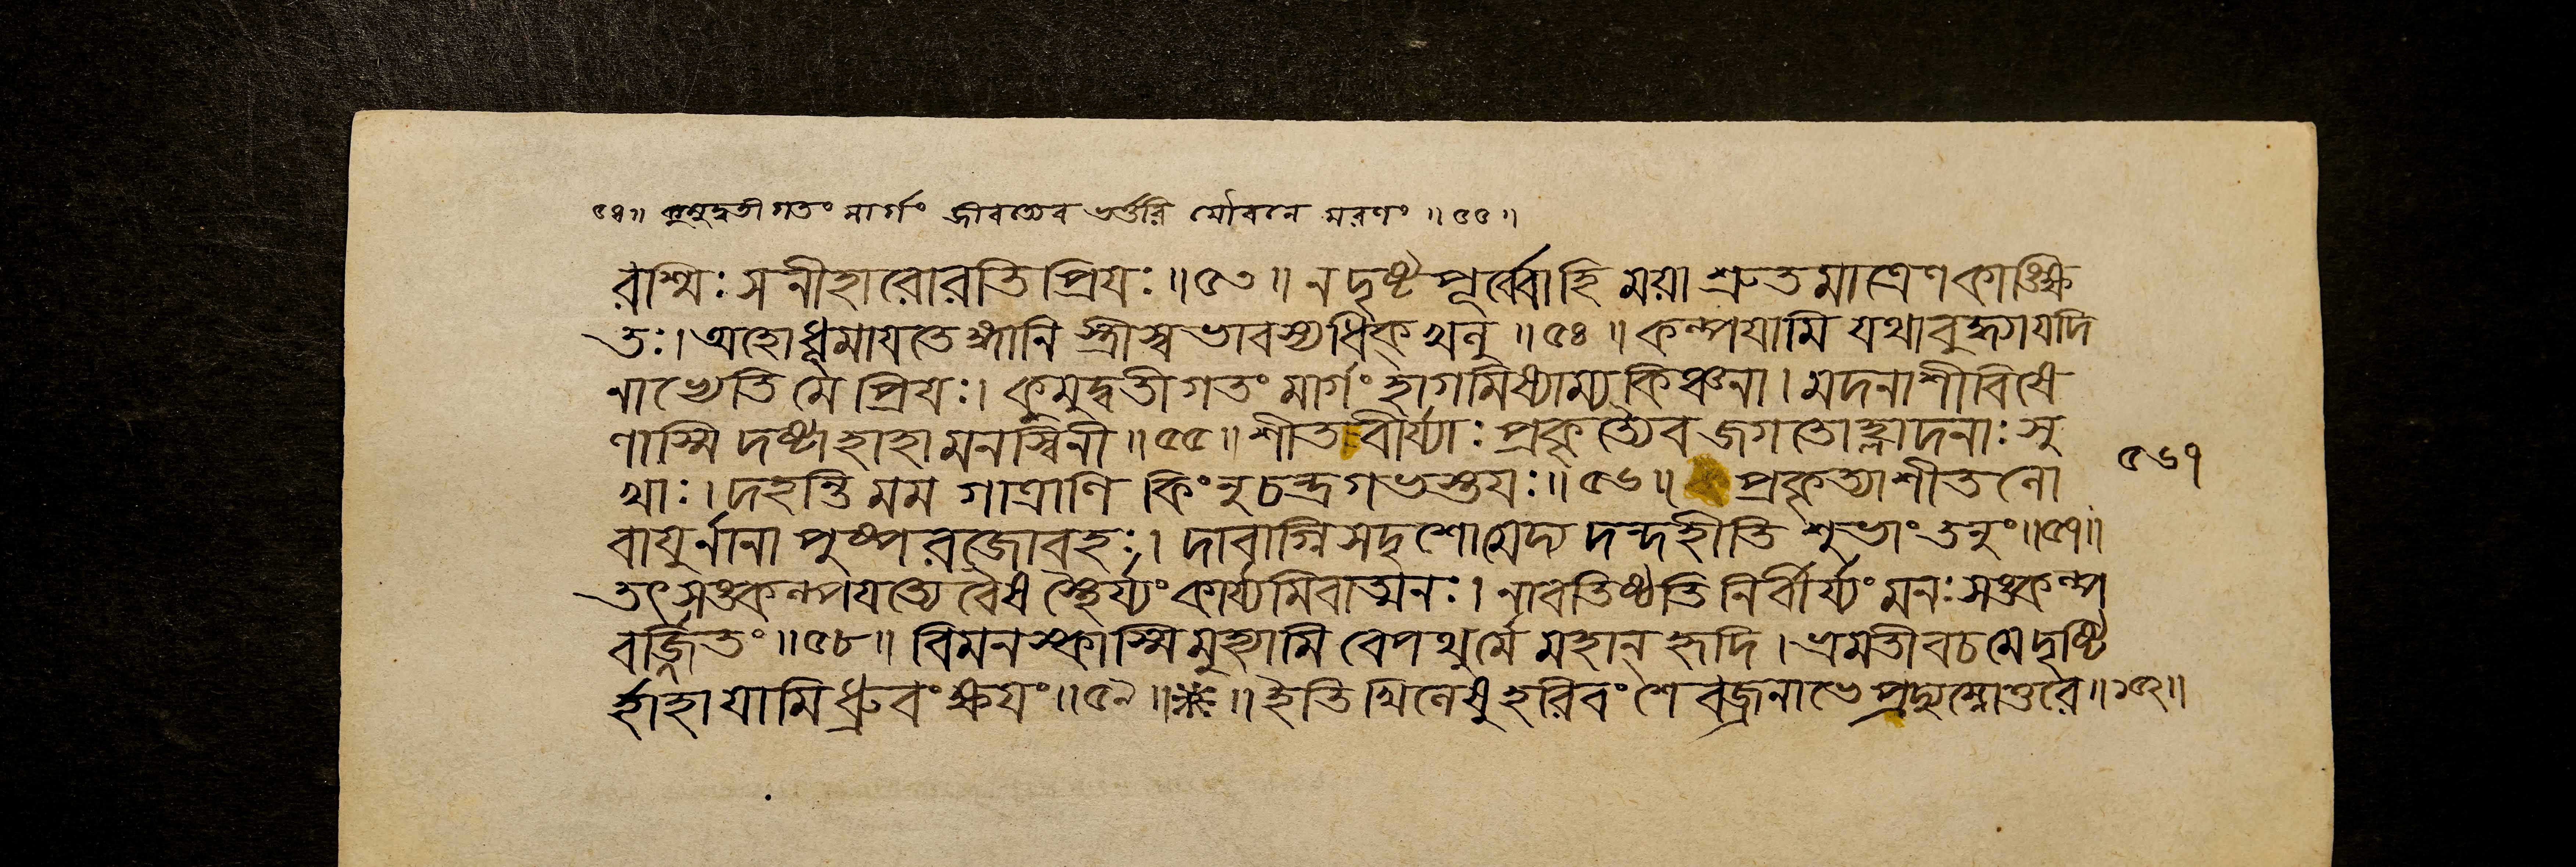 ৫৪॥ কুমুদ্বতীগতং মার্গং জীবত্যেব ভর্ত্তরি যৌবনে মরণং ॥৫৫॥
রশ্মিঃ সনীহারোরতিপ্রিযঃ॥৫৩॥ ন দৃষ্টপূর্ব্বোহি ময়া শ্রুতমাত্রেণ কাঙ্ক্ষি
তঃ। অহোধূমাযতেঙ্গানি স্ত্রীস্বভাবস্যধিক্ খলু॥৫৪॥ কল্পযামি যথাবুদ্ধ্যাযদি
নাভ্যেতি মে প্রিযঃ। কুমুদ্বতীগতং মার্গং হাগমিষ্যাম্যকিঞ্চনা। মদনাশীবিষে
ণাস্মি দষ্টাহাহামনস্বিনী॥৫৫॥ শীতবীর্য্যাঃ প্রকৃত্যৈব জগতোহ্লাদনাঃ সু
খাঃ। দহন্তি মম গাত্রাণি কিংনুচন্দ্রগভস্তযঃ॥৫৬॥ প্রকৃত্যাশীতলো
৫৬৭
বাযুর্নানাপুষ্পরজোবহঃ। দাবাগ্নিসদৃশোমেদ্য দন্দহীতি শুভাং তনুং॥৫৭॥
তৎসঙকল্পযত্যেবৈষ স্থৈর্য্যং কার্য্যমিবাত্মনঃ। নাবতিষ্ঠতি নির্বীর্য্যং মনঃসঙকল্প
বর্জ্জিতং॥৫৮॥ বিমনস্কাস্মি মুহ্যামি বেপথুর্মে মহান্ হৃদি। ভ্রমতীবচমেদৃষ্টি
র্হাহাযামি ধ্রুবংক্ষযং॥৫৯॥※॥ ইতি খিলেষুহরিবংশে বজ্রনাভে প্রদ্যুম্নোত্তরে॥১৫২॥